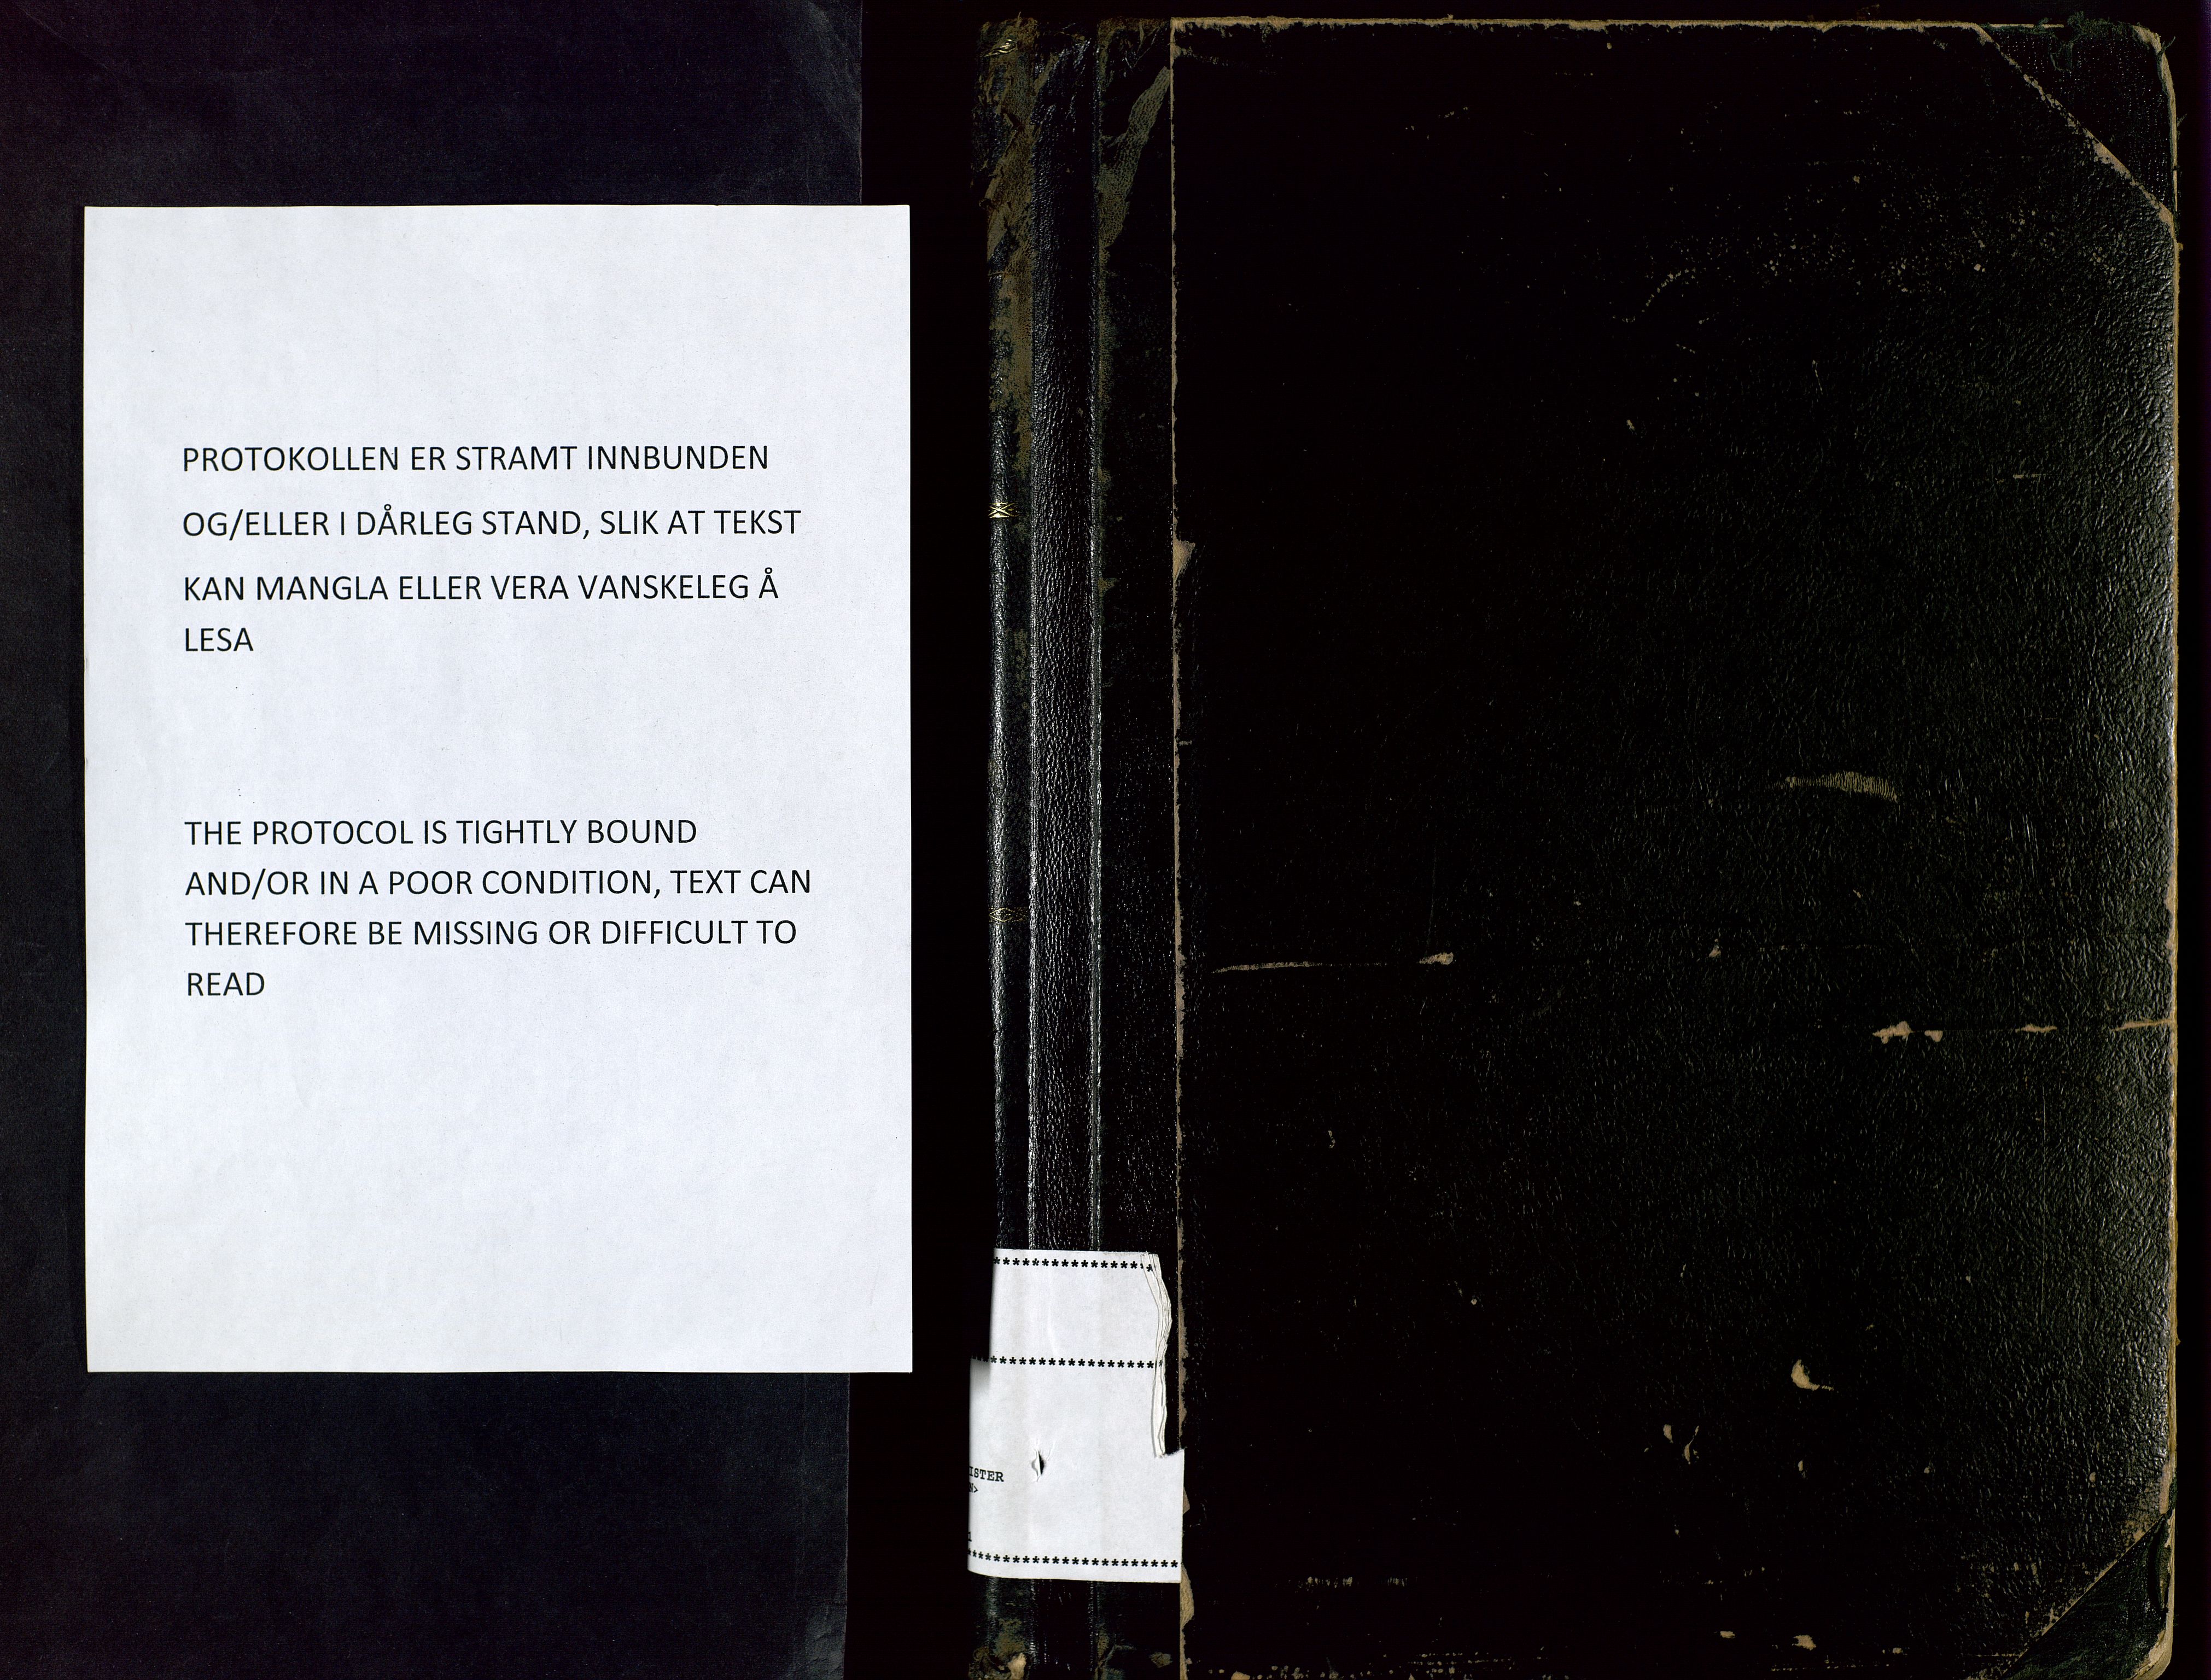 PROTOKOLLEN ER STRAMT INNBUNDEN
OG/ELLER I DÅRLEG STAND, SLIK AT TEKST
KAN MANGLA ELLER VERA VANSKELEG Å
LESA
THE PROTOCOL IS TIGHTLY BOUND
AND/OR IN A POOR CONDITION, TEXT CAN
THEREFORE BE MISSING OR DIFFICULT TO
READ